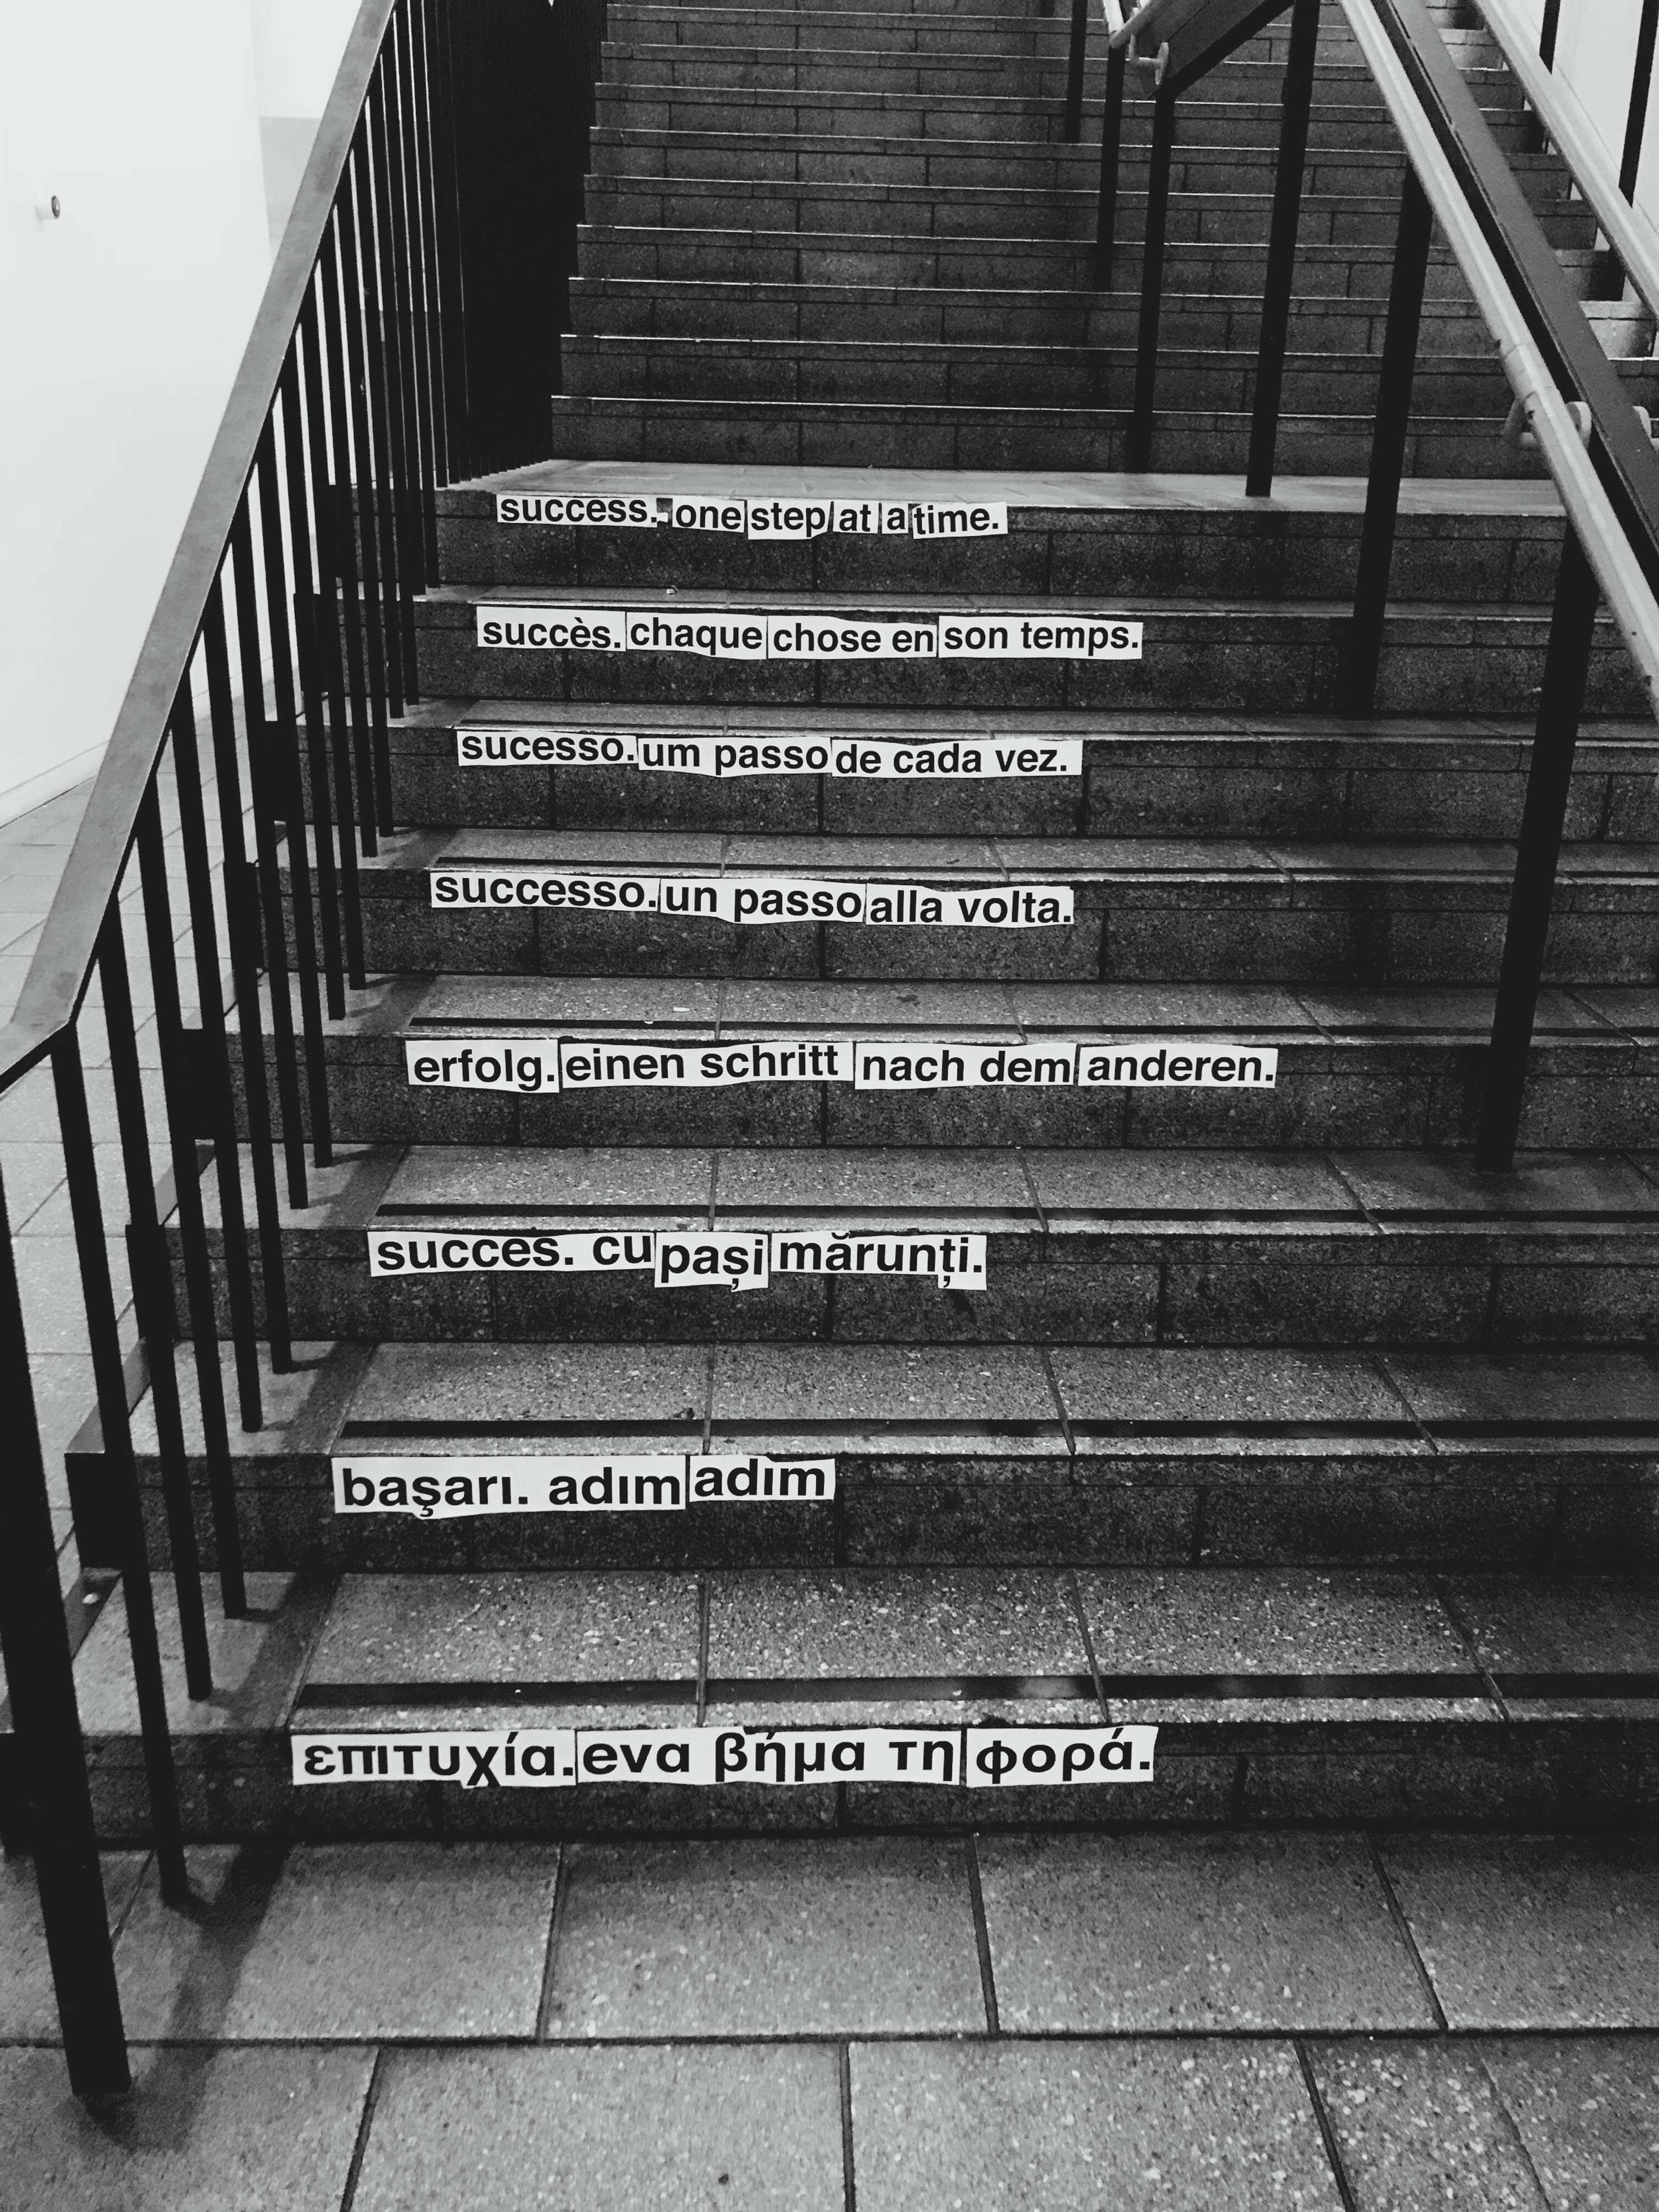 success. one step at a time.
succès. chaque chose en son temps.
sucesso. um passo de cada vez.
successo. un passo alla volta.
erfolg. einen schritt nach dem anderen.
succes. cu pași mărunți.
başarı. adım adım
επιτυχία. ενα βήμα τη φορά.